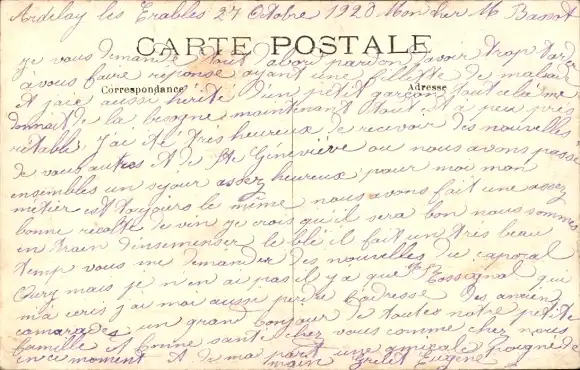 Ardelay les Erables 27 Octobre 1920 Mon cher Mr Bassot
CARTE POSTALE
je vous demande tout d'abord pardon d'avoir trop tardé
à vous faire réponse ayant une fillette de malade
Correspondance
Adresse
et j'aie aussi hérité d'un petit garçon tout cela me
donnait de la besogne maintenant tout est à peu près
rétabli j'ai été très heureux de recevoir des nouvelles
de vous autres et de Ste Géneviève ou nous avons passé
ensembles un séjour assez heureux pour moi mon
métier est toujours le même nous avons fait une assez
bonne récolte de vin je crois qu'il sera bon nous sommes
en train d'insemenser le blé il fait un très beau
temp vous me demander des nouvelles du caporal
mais je n'en ai pas il y a que Rossignol qui
m'a écris j'ai moi aussi perdu l'adresse des anciens
camarades un grand bonjour de toutes notre petite
famille et bonne santé chez vous comme chez nous
en ce moment et de ma part une amicale poignée de
main Grelet Eugène